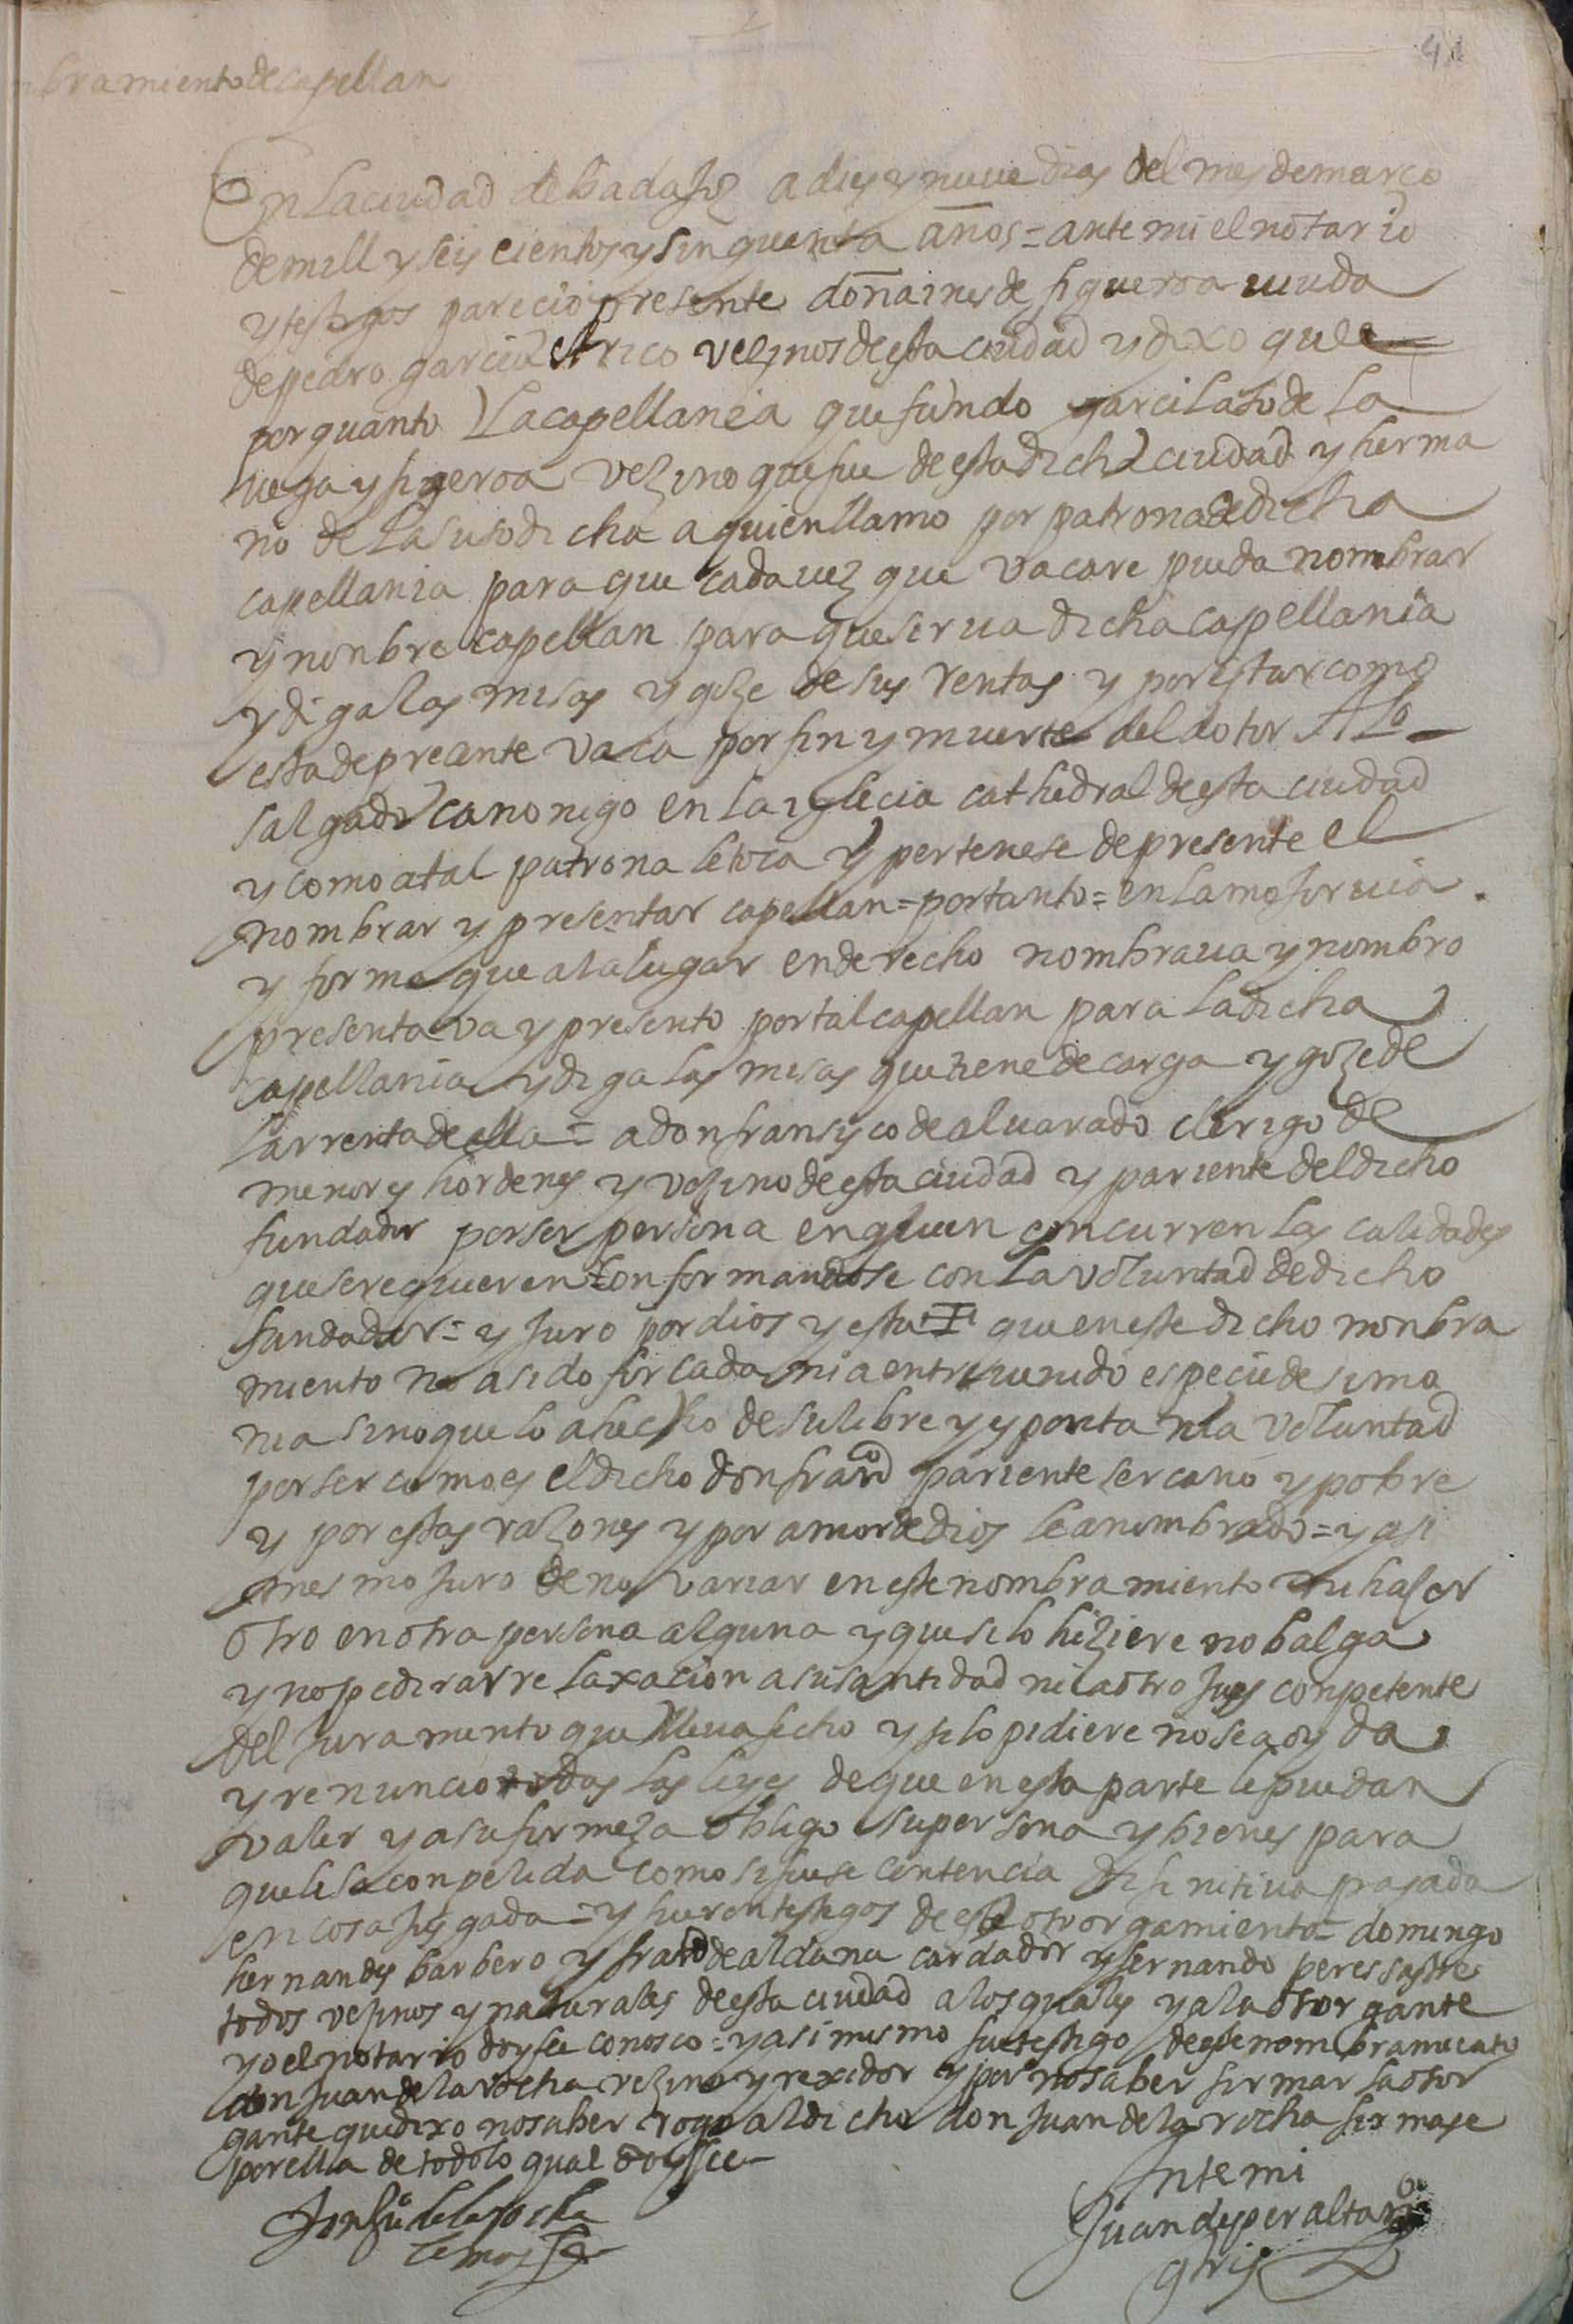 bramiento de capellan
En la ciudad de badajoz a dies y nueve dias del mes de março
de mill y seis cientos y sinquenta años = ante mi el notario
y testigos parecio presente doña ines de figueroa viuda
de pedro garcia el rico vezinos desta ciudad y dixo que
por quanto la capellania que fundo garcilaso de la
vega y figeroa vezino que fue de esta dicha ciudad y herma
no de la susodicha a quien llamo por patrona de dicha
capellania para que cada vez que vacare pueda nombrar
y nonbre capellan para que sirva dicha capellania
y diga las misas y goze de sus rentas y por estar como
esta de preante vaca por fin y muerte del dotor Alo
salgado canonigo en la iglecia cathedral de esta ciudad
y como a tal patrona le toca y pertenese de presente el
nombrar y presentar capellan = por tanto = en la mejor via
y forma que a lugar en derecho nombrava y nombro
presentava y presento por tal capellan para la dicha
capellania y diga las misas que tiene de carga y goze de
la rrenta de ella = a don fransisco de alvarado clerigo de
menores hordenes y vezino de esta ciudad y pariente del dicho
fundador por ser persona en quien concurren las calidades
que se requieren conformandose con la voluntad de dicho
fundador = y juro por dios y esta + que en este dicho nonbra
miento no a sido forçada ni a entrevenido especie de simo
nia sino que lo a hecho de su libre y espontania voluntad
por ser como es el dicho don franco pariente sercano y pobre
y por estas razones y por amor de dios le a nombrado = y asi
mesmo juro de no variar en este nombramiento ni haser
otro en otra persona alguna y que si lo hiziere no balga
y no pedira rrelaxacion a su santidad ni a otro jues conpetente
del juramento que lleva fecho y si lo pidiere no sea oyda
y renuncio todas las leyes de que en esta parte le puedan
valer y a su firmeza obligo su persona y bienes para
que le sea conpelida como si fuese centencia difinitiva pasada
en cosa jusgada = y fueron testigos de este otorgamiento = domingo
hernandes barbero y franco de aldana cardador y fernando peres sastre
todos vezinos y naturales de esta ciudad a los quales y a la otorgante
yo el notario doy fee conosco = y asi mismo fue testigo de este nombramiento
don juan de la rocha vezino y rexidor y por no saber firmar la otor
gante que dixo no saber rogo al dicho don juan de la rocha firmase
por ella de todo lo qual doy fee
Don juo de la rocha
Ante mi
Juan de peralta